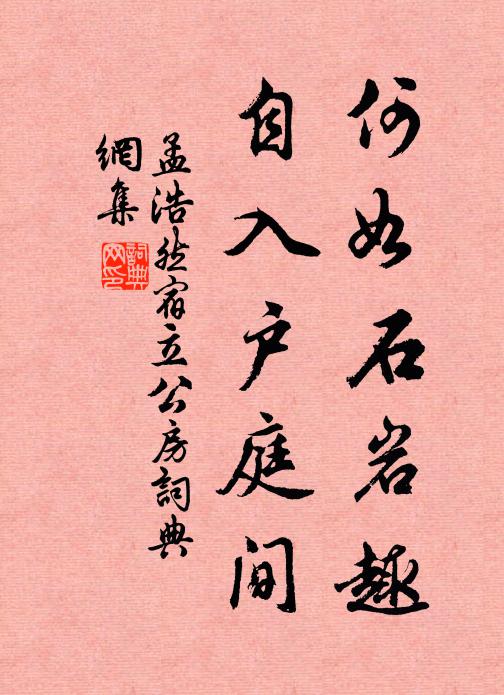 何如石岩趣
自入户庭間
孟浩然宿立公房詞典
網集
詞典
网印